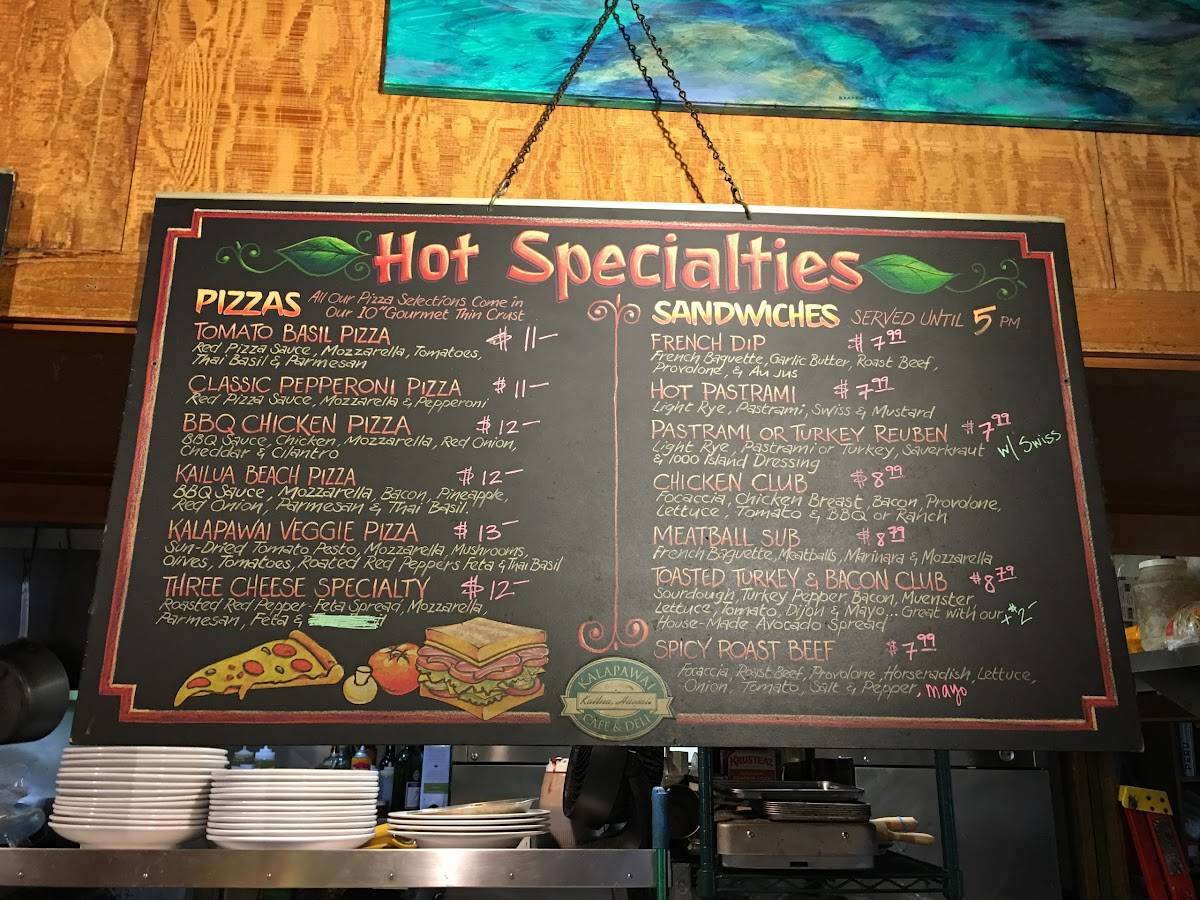 Hot Specialties
PIZZAS All Our Pizza Selections Come in
Our 10" Gourmet Thin Crust
TOMATO BASIL PIZZA $ 11-
Red Pizza Sauce, Mozzarella, Tomatoes,
Thai Basil & Parmesan
CLASSIC PEPPERONI PIZZA $ 11-
Red Pizza Sauce, Mozzarella & Pepperoni
BBQ CHICKEN PIZZA $ 12-
BBQ Sauce, Chicken, Mozzarella, Red Onion,
Cheddar & Cilantro
KAILUA BEACH PIZZA $ 12-
BBQ Sauce, Mozzarella, Bacon, Pineapple,
Red Onion, Parmesan & Thai Basil.
KALAPAWAI VEGGIE PIZZA $ 13-
Sun-Dried Tomato Pesto, Mozzarella, Mushrooms,
Olives, Tomatoes, Roasted Red Peppers Feta & Thai Basil
THREE CHEESE SPECIALTY $ 12-
Roasted Red Pepper-Feta Spread, Mozzarella,
Parmesan, Feta &
SANDWICHES SERVED UNTIL 5 PM
FRENCH DIP $ 7.99
French Baguette, Garlic Butter, Roast Beef,
Provolone, & Au Jus
HOT PASTRAMI $ 7.99
Light Rye, Pastrami, Swiss & Mustard
PASTRAMI OR TURKEY REUBEN $ 7.99
Light Rye, Pastrami or Turkey, Sauerkraut w/ Swiss
& 1000 Island Dressing
CHICKEN CLUB $ 8.99
Focaccia, Chicken Breast, Bacon, Provolone,
Lettuce, Tomato & BBQ or Ranch
MEATBALL SUB $ 8.79
French Baguette, Meatballs, Marinara & Mozzarella
TOASTED TURKEY & BACON CLUB $ 8.79
Sourdough, Turkey, Pepper Bacon, Muenster
Lettuce, Tomato, Dijon & Mayo... Great with our
House-Made Avocado Spread +$2-
SPICY ROAST BEEF $ 7.99
Focaccia, Roast Beef, Provolone, Horseradish, Lettuce,
Onion, Tomato, Salt & Pepper, mayo
KALAPAWAI
Kailua, Hawaii
CAFE & DELI
KRUSTEAZ